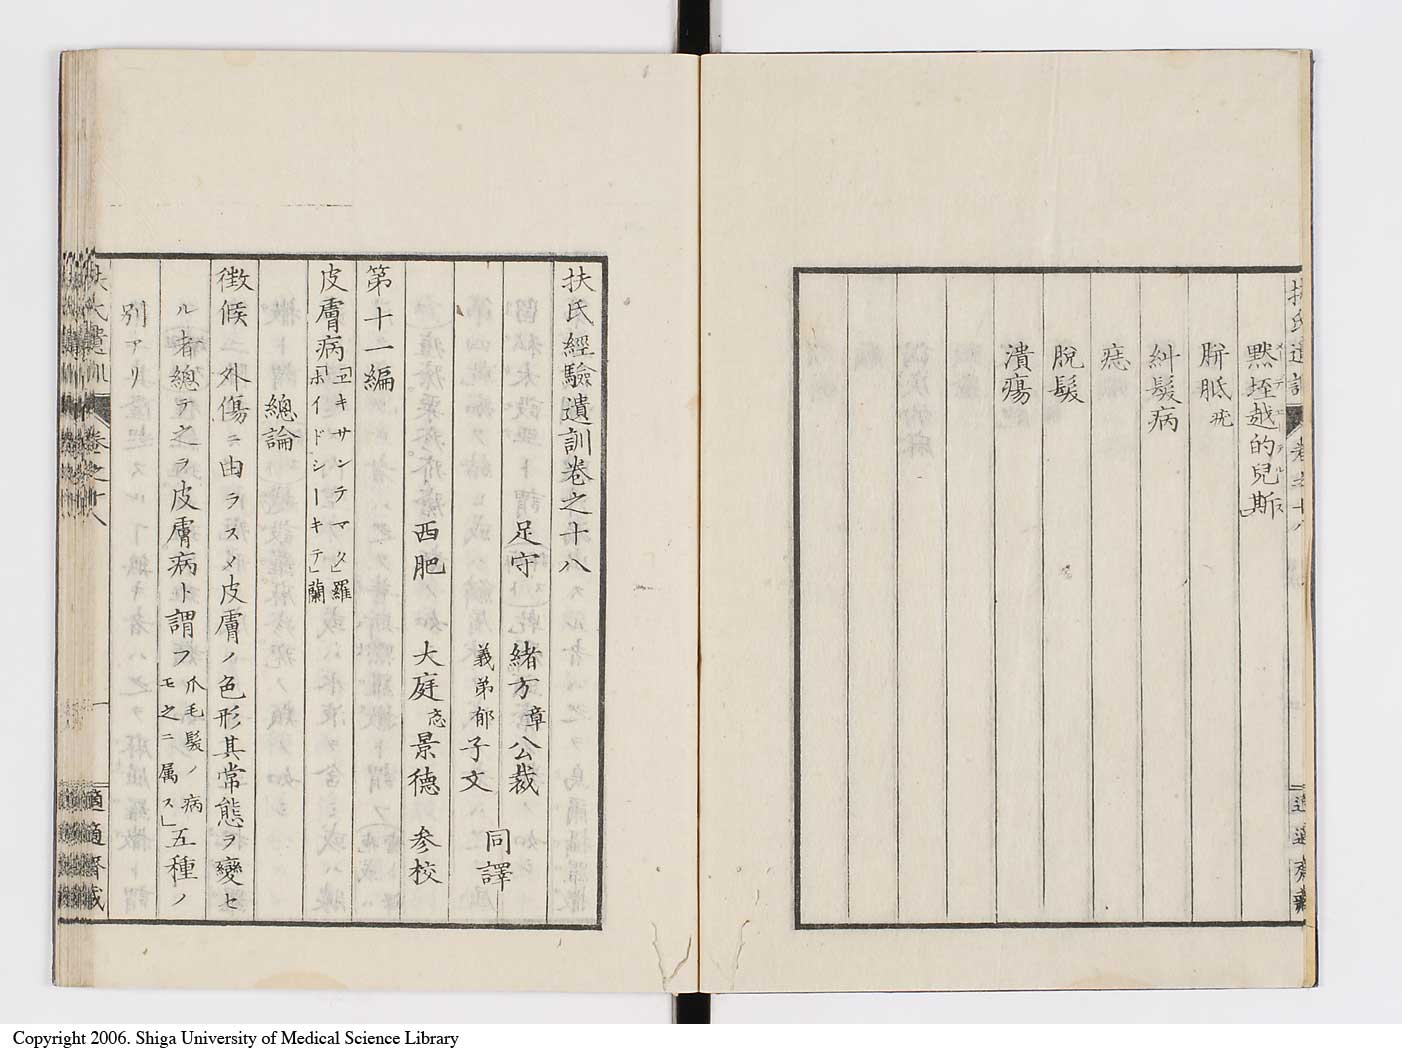 扶氏遺訓 卷之十八 適適齋藏
黙垤越的兒斯
メテエテルス
胼胝 疣
糾髮病
痣
脫髮
潰瘍
扶氏經驗遺訓卷之十八
足守 緒方章公裁
義弟郁子文 同譯
西肥 大庭忞景德 參校
第十一編
皮膚病「エキサンテマタ」羅「ホイドシーキテ」蘭
總論
徴候 外傷ニ由ラスメ皮膚ノ色形其常態ヲ變セ
ル者總テ之ヲ皮膚病ト謂フ爪毛髮ノ病モ之ニ属ス」五種ノ
別アリ
扶氏遺訓 卷之十八 一 適適齋藏
Copyright 2006. Shiga University of Medical Science Library